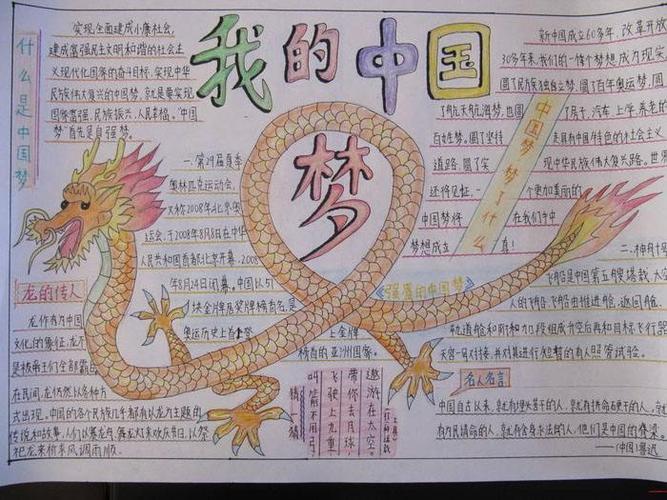 我的中国
梦
什么是中国梦
实现全面建成小康社会,
建成富强民主文明和谐的社会主
义现代化国家的奋斗目标,实现中华
民族伟大复兴的中国梦,就是要实现
国家富强、民族振兴、人民幸福。"中国
梦"首先是自强梦。
一.第29届夏季
奥林匹克运动会,
又称2008年北京奥
运会,于2008年8月8日在中华
人民共和国首都北京开幕,2008
年8月24日闭幕。中国以51
块金牌居奖牌榜首名,是
奥运历史上首
上金牌
榜首的亚洲国家。
龙的传人
龙作为中国
在民间,龙仍然以各种方
式出现。中国的各个民族几乎都有以龙为主题的
传说和故事,人们以赛龙舟、舞龙灯来欢庆节日,以祭
祀龙来祈求风调雨顺。
新中国成立60多年,改革开放
30多年来,我们的一件个梦想成为现实
圆了民族独立梦,圆了百年奥运梦,圆
了航天航海梦,也圆
了房子、汽车、上学、养老
百姓梦。圆了坚持
走具有中国特色的社会主义
道路,圆了实
现中华民族伟大复兴路。世
还将见证,一
个更加美丽的
中国梦将
在我们手中
梦想成立
真!
中国梦梦了什么
强盛的中国梦
二.神舟十号
飞船是中国第五艘搭载太空
人的飞船。飞船由推进舱、返回舱、
轨道舱和附加段组成。升空后再和目标飞行器
天宫一号对接,并对其进行短暂的有人照管试验。
名人名言
中国自古以来,就有埋头苦干的人,就有拼命硬干的人,就
有为民请命的人,就有舍身求法的人,他们是中国的脊梁。
——(中国)鲁迅
遨游在太空。
带你去月球,
飞驶上九重。
叫箭不用弓,
猜猜